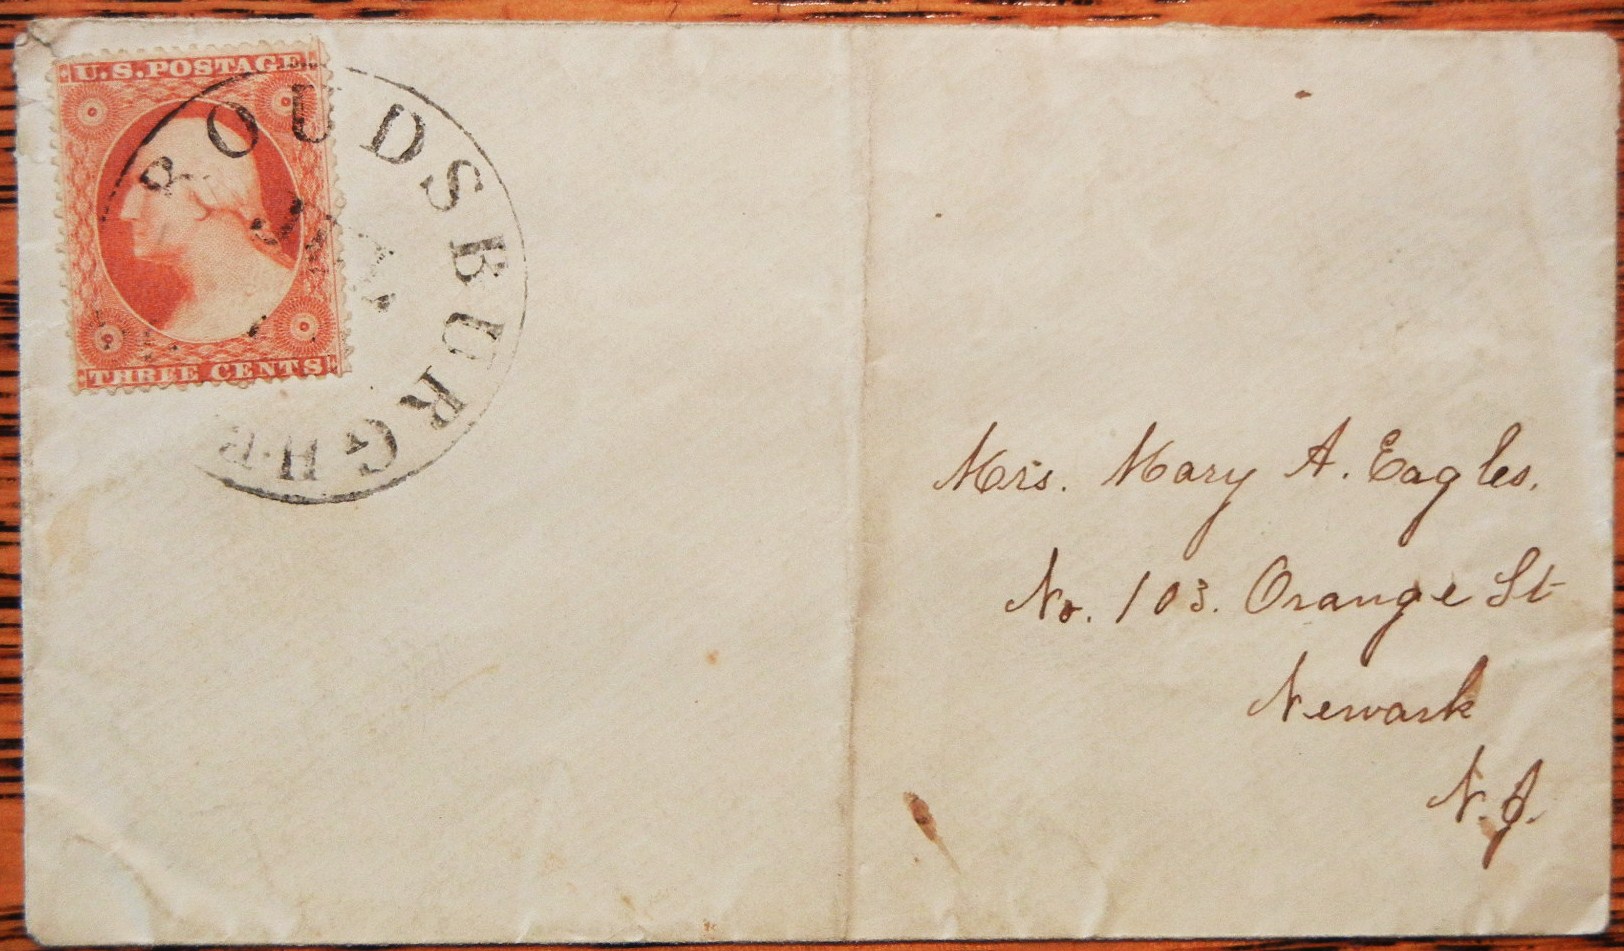 U.S. POSTAGE
THREE CENTS
ROUDSBURGH
Mrs. Mary A. Eagles.
No. 103. Orange St
Newark
N.J.